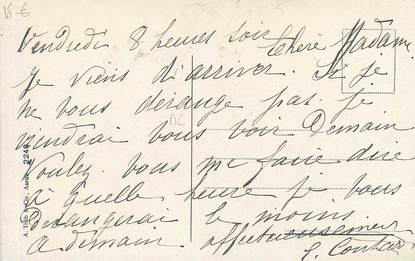 15 €
Vendredi 8 heures soir Chère Madame
Je viens d'arriver. Si je
ne vous derange pas je
viendrai vous voir Demain
Voulez vous me faire dire
à quelle heure je vous
derangerai le moins
a demain affectueusement
A. T &